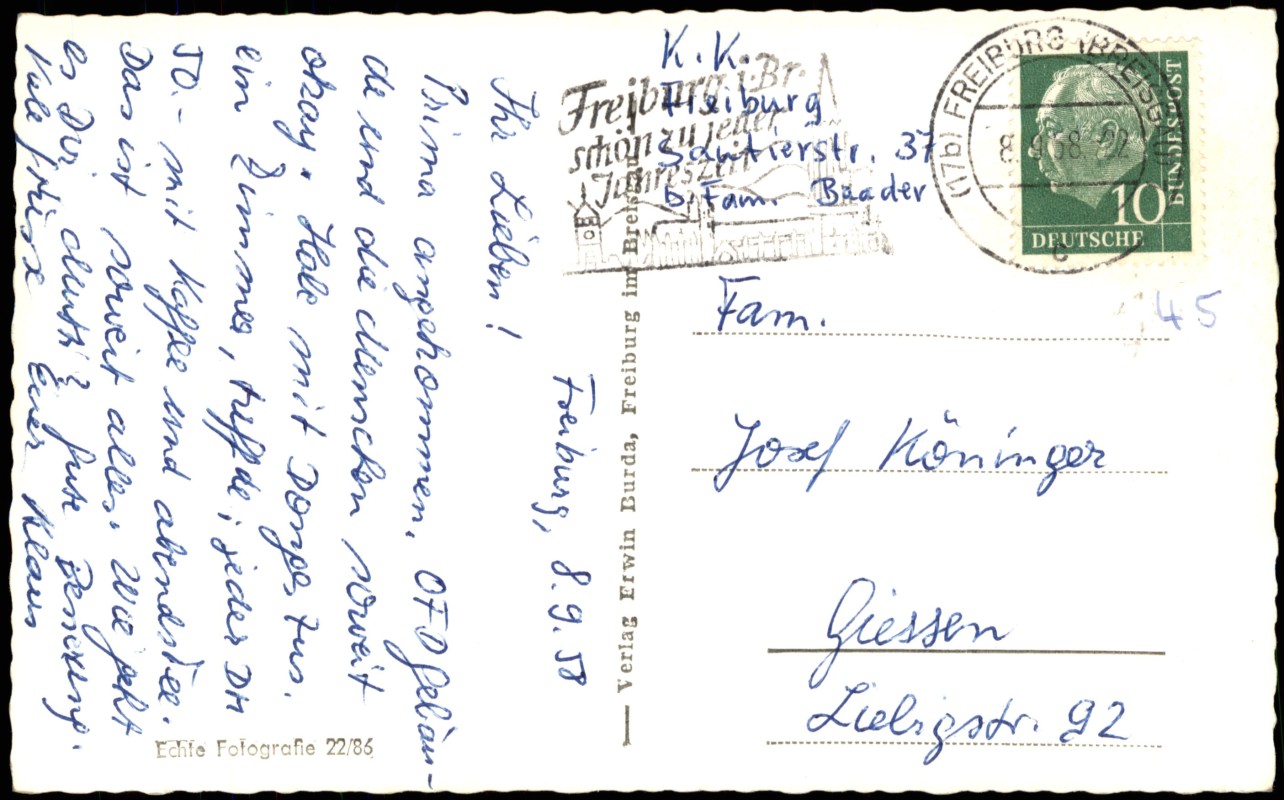 Freiburg, 8.9.58
Ihr Lieben!
Prima angekommen. OFD Gebäu-
de und die Menschen soweit
okay. Hole mit Donges zus.
ein Zimmer, tuffde; jeder DM
50.- mit Kaffee und abendstee.
Das ist soweit alles. Wie geht
es Dir, Mutti? Gute Besserung.
Viele Grüsse Euer Klaus
Echte Fotografie 22/86
Verlag Erwin Burda, Freiburg im Breisgau
K.K.
Freiburg
Sautierstr. 37
b. Fam. Baader
Freiburg i. Br.
schön zu jeder
Jahreszeit
(17b) FREIBURG (BREISGAU)
8.9.58
c
10
DEUTSCHE
BUNDESPOST
45
Fam.
Josef Köninger
Giessen
Liebigstr. 92